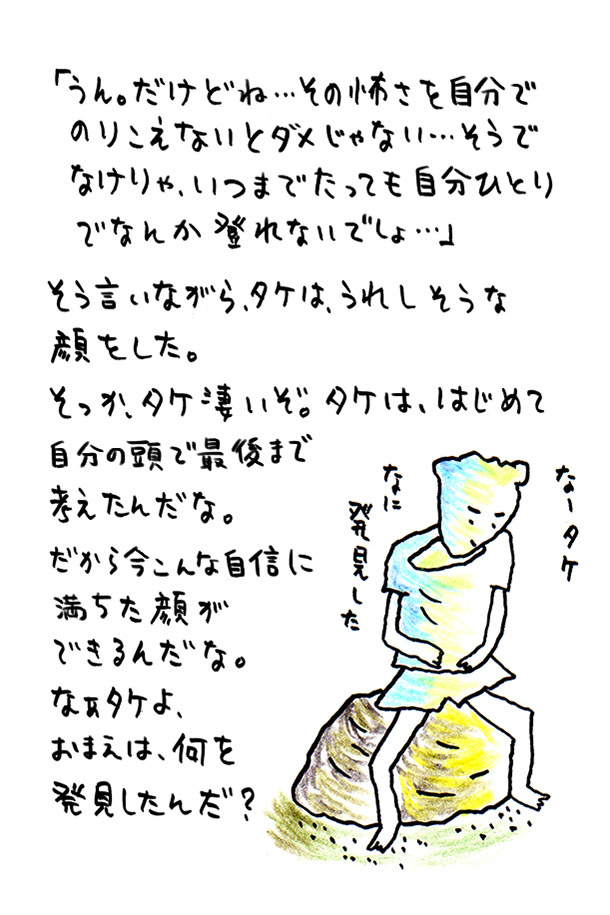 「うん。だけどね…その怖さを自分で
のりこえないとダメじゃない…そうで
なけりゃ、いつまでたっても自分ひとり
でなんか登れないでしょ…」
そう言いながら、タケは、うれしそうな
顔をした。
そっか、タケ凄いぞ。タケは、はじめて
自分の頭で最後まで
考えたんだな。
だから今こんな自信に
満ちた顔が
できるんだな。
なぁタケよ、
おまえは、何を
発見したんだ？
なータケ
なに
発見した